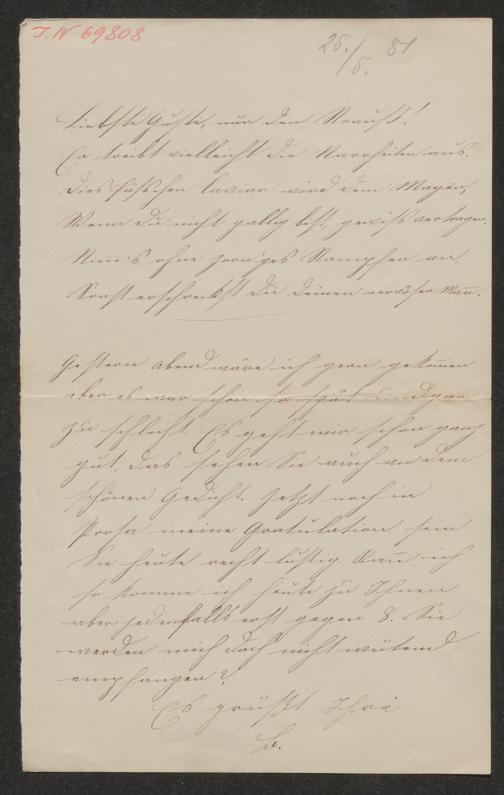 J.N. 69808
25./5. 81
Liebste Guste, nun den Strauß!
Er treibt vielleicht die Narrheiten aus.
Dies Fässchen Caviar wird dem Magen,
Wenn Du nicht gallig bist, gewiß vertragen.
Nimm's ohne zorn'ges Stampfen an,
Sonst erschreckst Du Deinen nervösen Mann.
Gestern Abend wäre ich gern gekommen
aber es war schon so spät
zu schlecht. Es geht mir schon ganz
gut, das sehen Sie auch an dem
schönen Gedicht. Jetzt noch in
Prosa meine Gratulation, sein
Sie heute recht lustig. Kann ich
so komme ich heute zu Ihnen
aber jedenfalls erst gegen 8. Sie
werden mich doch nicht wütend
empfangen?
Es grüßt Ihre